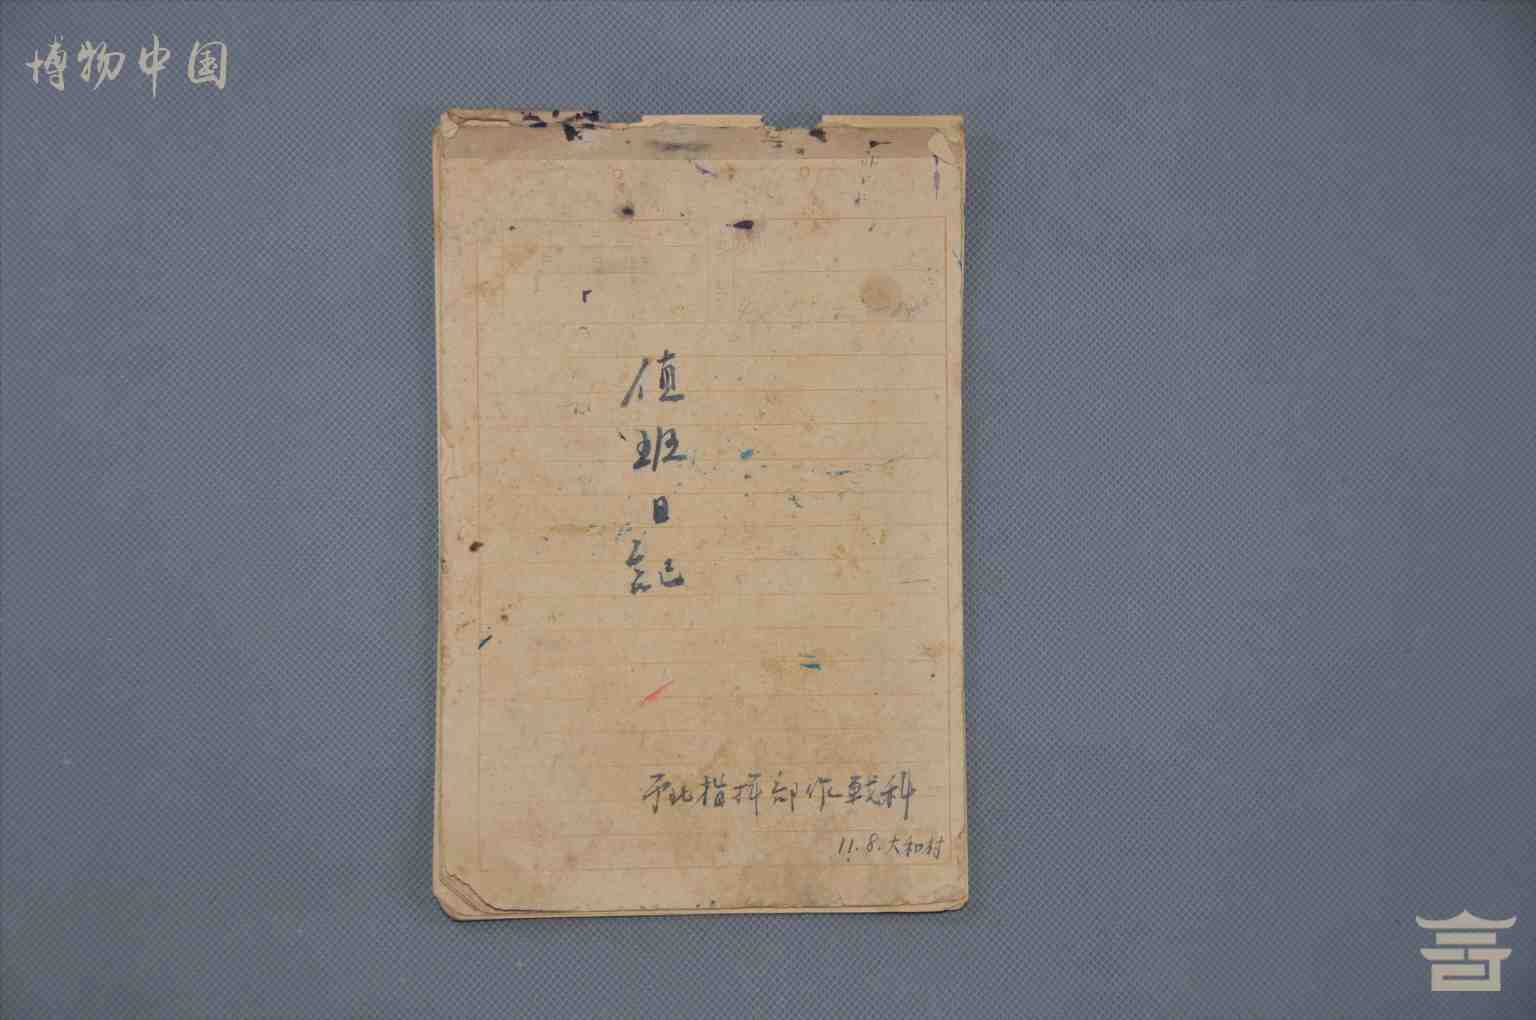 博物中国
值班日記
予北指挥部作戰科
11.8.大和村